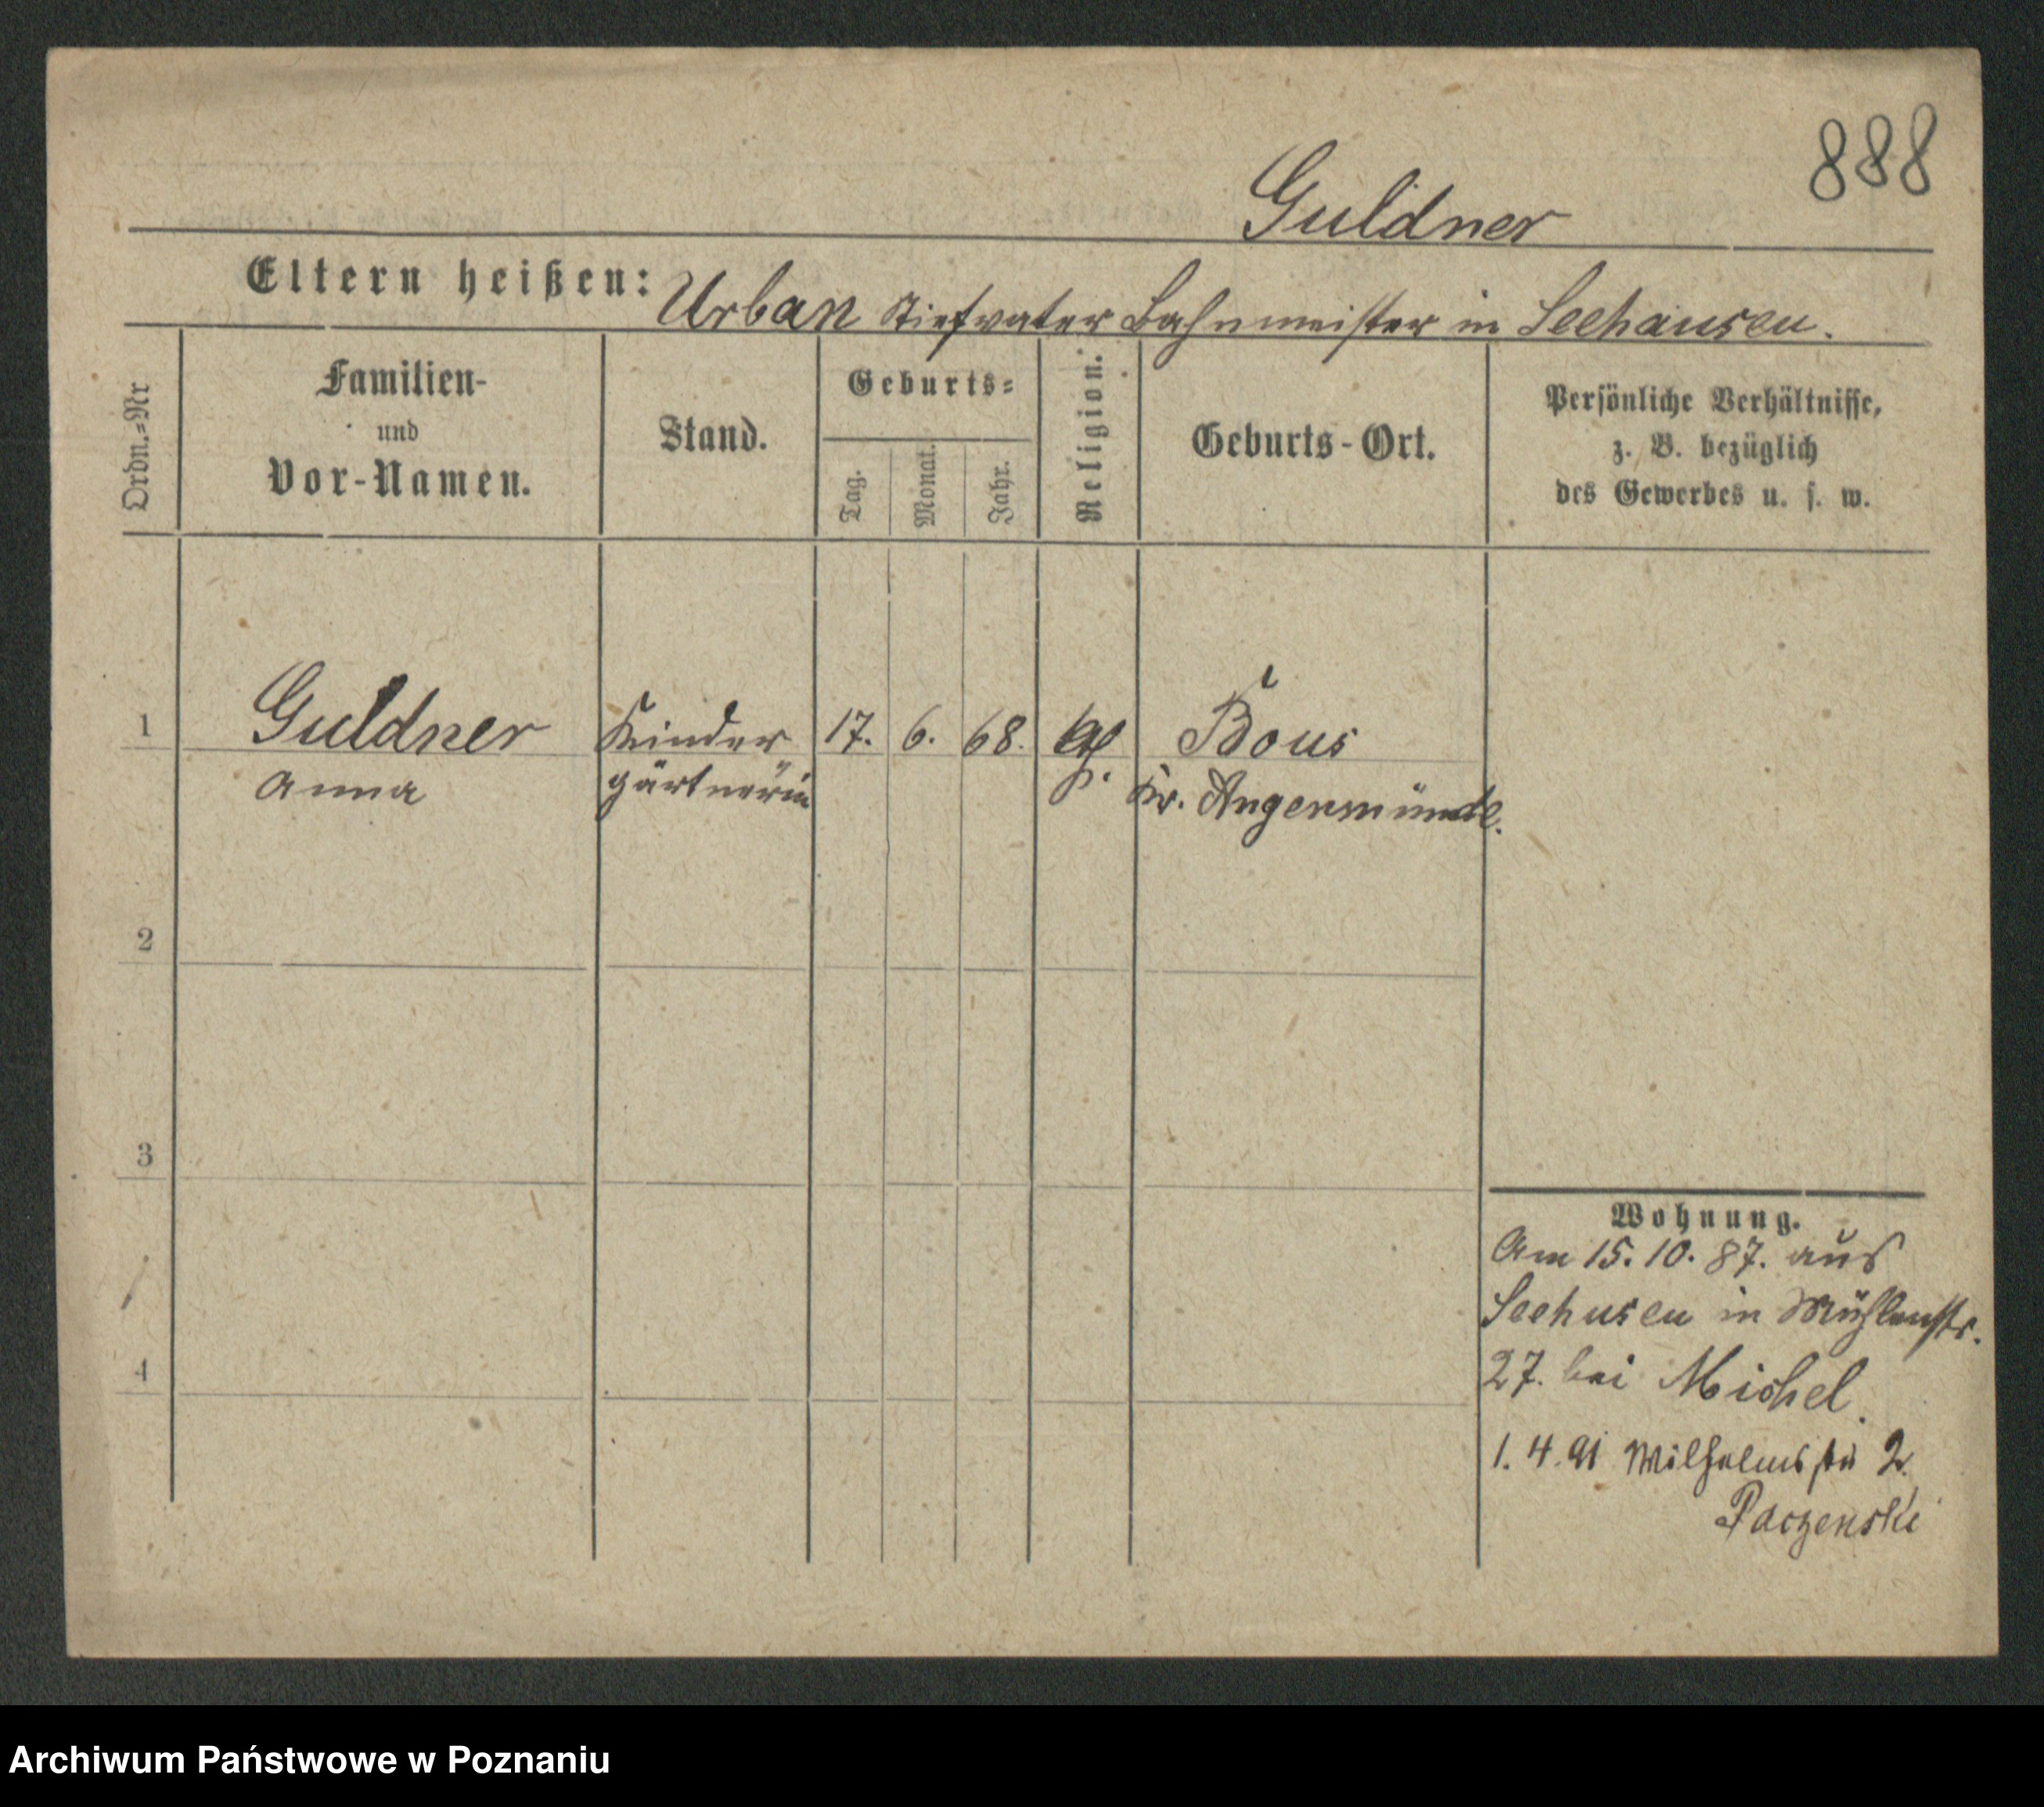 888
Guldner
Eltern heißen: Urban Stiefvater Bahnmeister in Seehausen.
Ordn.=Nr
Familien-
und
Vor-Namen.
Stand.
Geburts=
Tag.
Monat.
Jahr.
Religion.
Geburts-Ort.
Persönliche Verhältnisse,
z. B. bezüglich
des Gewerbes u. s. w.
1 Guldner Kinder 17. 6. 68. Bous
Anna gärtnerin Kr. Angermünde.
2
3
4
Wohnung.
Am 15.10.87. aus
Seehusen in Mühlenstr.
27. bei Michel.
1. 4. 91 Wilhelmstr 2.
Paczenski
Archiwum Państwowe w Poznaniu